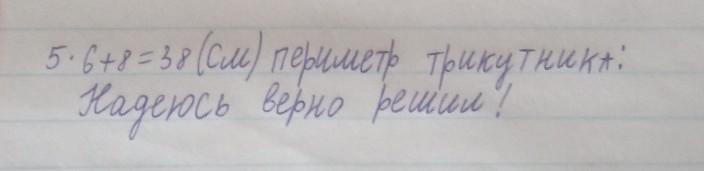 5·6+8=38(см) периметр трикутника:
Надеюсь верно решил!